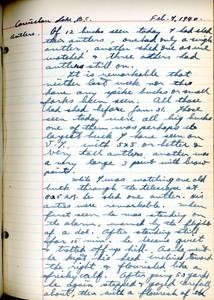 Cowichan Lake, B.C. Feb. 4, 1940.
Antlers. Of 12 bucks seen today 8 had shed
their antlers, one had one
antler, another shed one as we
watched & three others had
antlers still on.
It is remarkable that
neither last week nor this
have any spike bucks or small
forks been seen. All those
had shed before Jan. 15. Those
seen today were all big bucks
one of them was perhaps the
largest buck I have seen on
V.I. with 5x5 or better &
very tall antlers another was
a very large 3 point with brow
points.
While I was watching one old
buck through the telescope at
he shed one antler. His
antics were remarkable. When
first seen he was standing on
the alarm, scared by the flight
of a doe. After standing still
for 10 min. he became quiet
& trotted off up the
he kept his head inclined toward
the right & flourished like a
frisky calf. After going 50 yards
he again stopped & gazed
about, then with a flourish of the